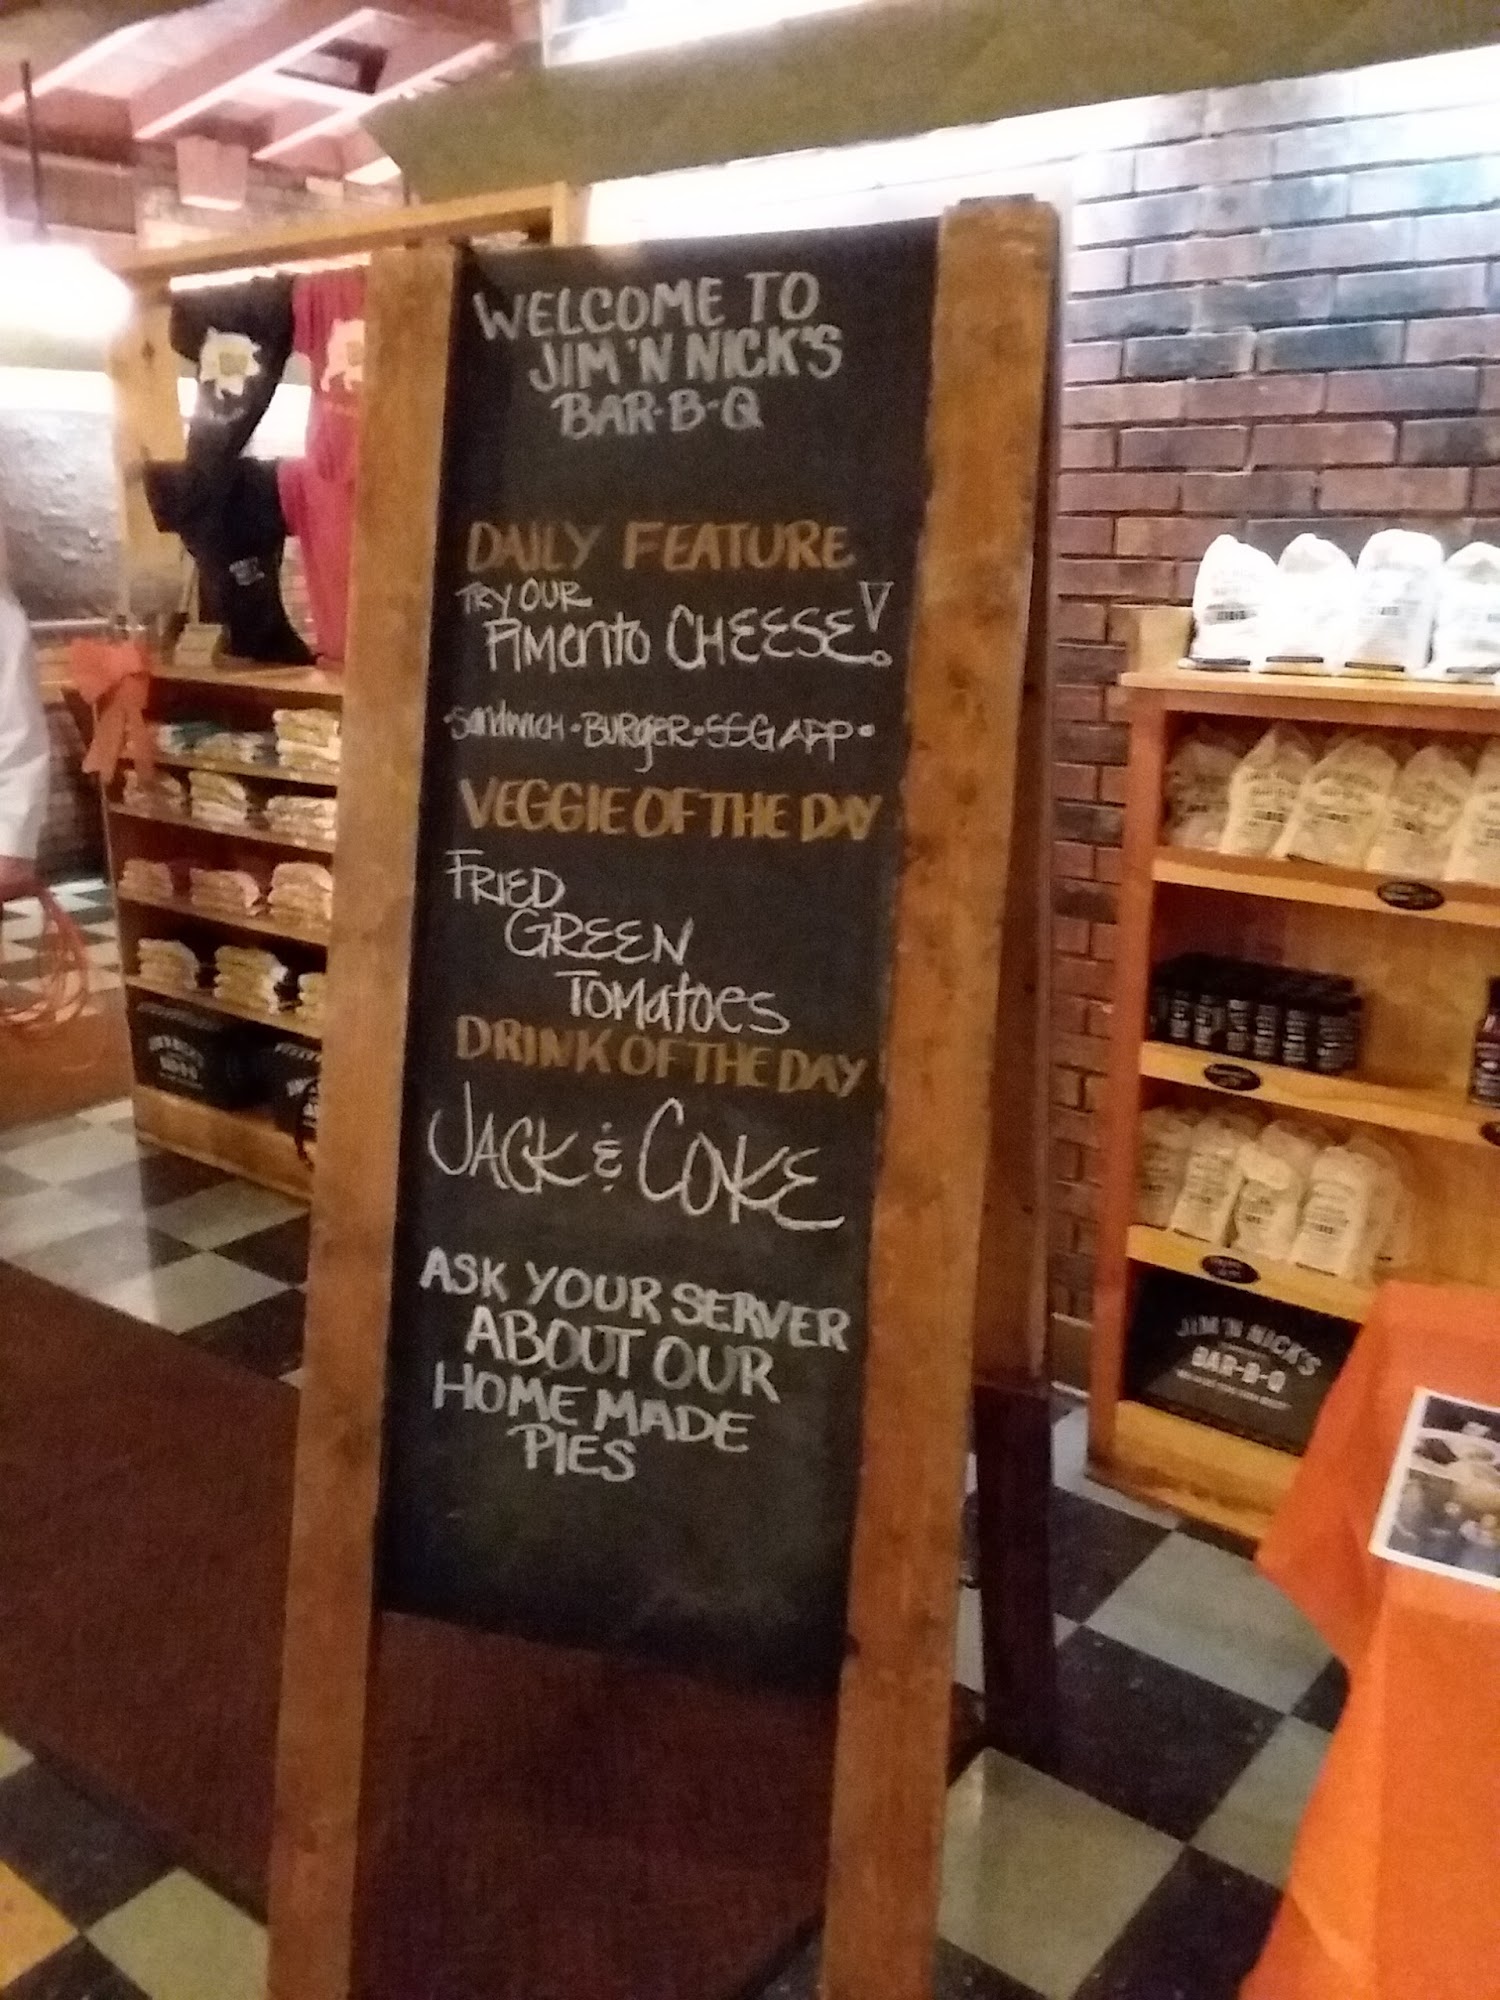 WELCOME TO
JIM 'N NICK'S
BAR-B-Q
DAILY FEATURE
TRY OUR
PIMENTO CHEESE!
•SANDWICH•BURGER•SSG APP•
VEGGIE OF THE DAY
FRIED
GREEN
TOMATOES
DRINK OF THE DAY
JACK & COKE
ASK YOUR SERVER
ABOUT OUR
HOME MADE
PIES
JIM 'N NICK'S
BAR-B-Q